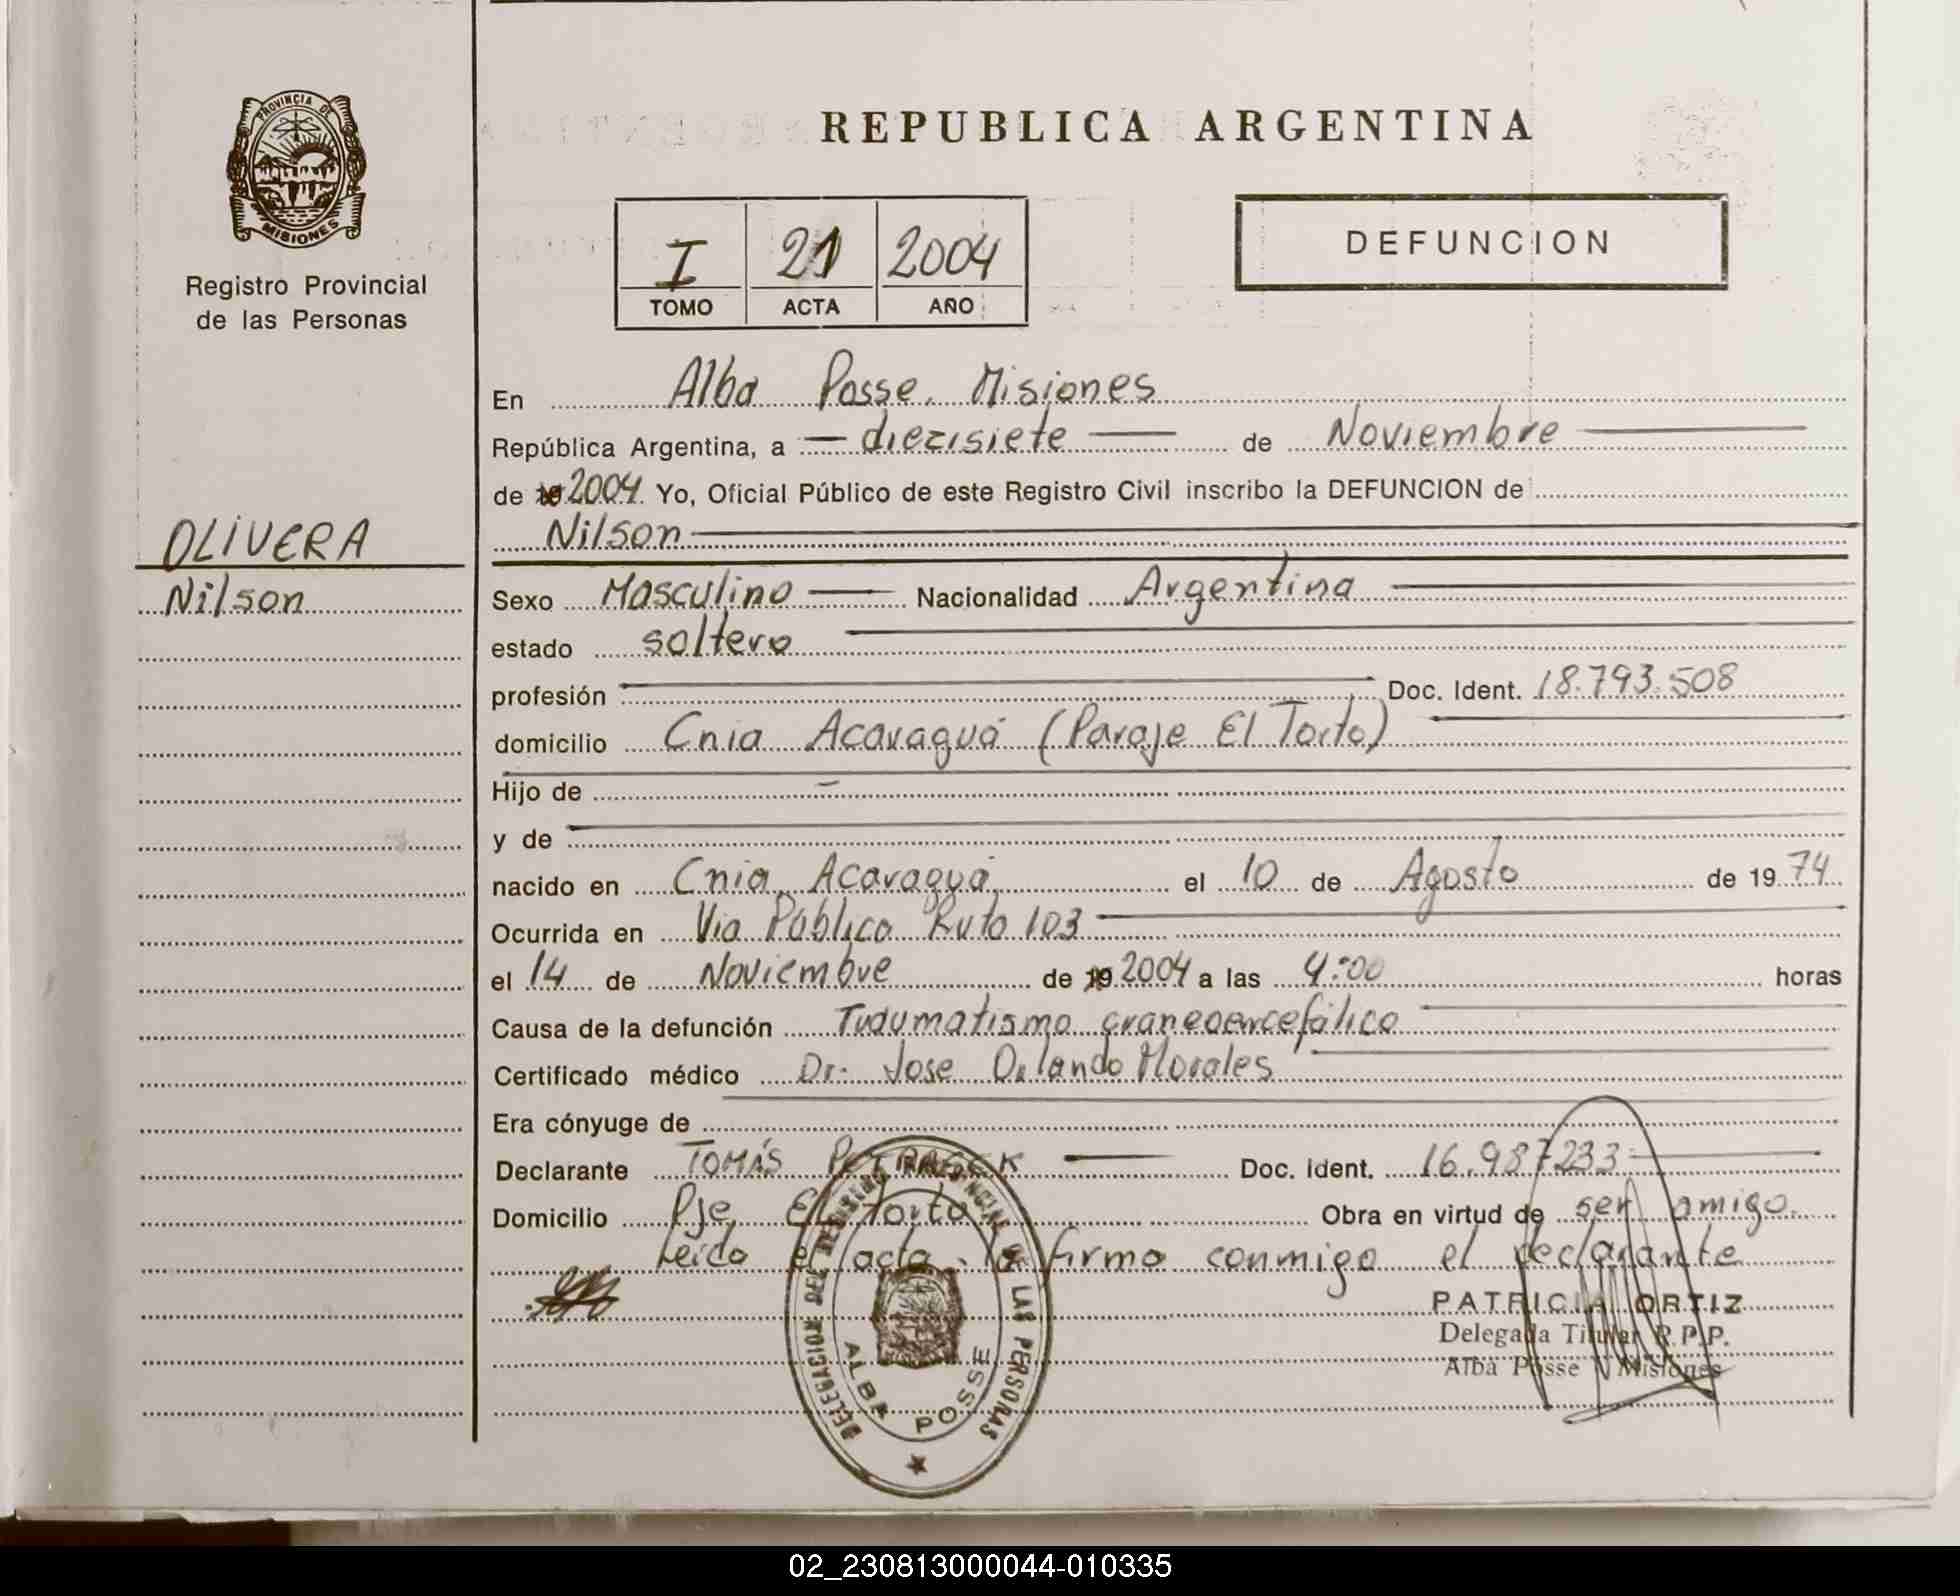 PROVINCIA DE
MISIONES
Registro Provincial
de las Personas
OLIVERA
Nilson
REPUBLICA ARGENTINA
I 21 2004
TOMO ACTA AÑO
DEFUNCION
En Alba Posse. Misiones
República Argentina, a — diezisiete — de Noviembre —
de 19 2004 Yo, Oficial Público de este Registro Civil inscribo la DEFUNCION de
Nilson
Sexo Masculino — Nacionalidad Argentina
estado soltero
profesión Doc. Ident. 18.793.508
domicilio Cnia Acaraguá (Paraje El Torto)
Hijo de —
y de
nacido en Cnia. Acaraguá el 10 de Agosto de 1974
Ocurrida en Via Pública Ruta 103
el 14 de Noviembre de 19 2004 a las 4:00 horas
Causa de la defunción Traumatismo craneoencefálico
Certificado médico Dr. Jose Orlando Morales
Era cónyuge de
Declarante TOMÁS Doc. Ident. 16.987233
Domicilio Pje El Torto Obra en virtud de ser amigo.
Leida el acta. la firma conmigo el declarante
PATRICIA ORTIZ
Delegada Titular R.P.P.
Alba Posse Misiones
DELEGACION DEL REGISTRO PROVINCIAL DE LAS PERSONAS
ALBA POSSE
02_230813000044-010335